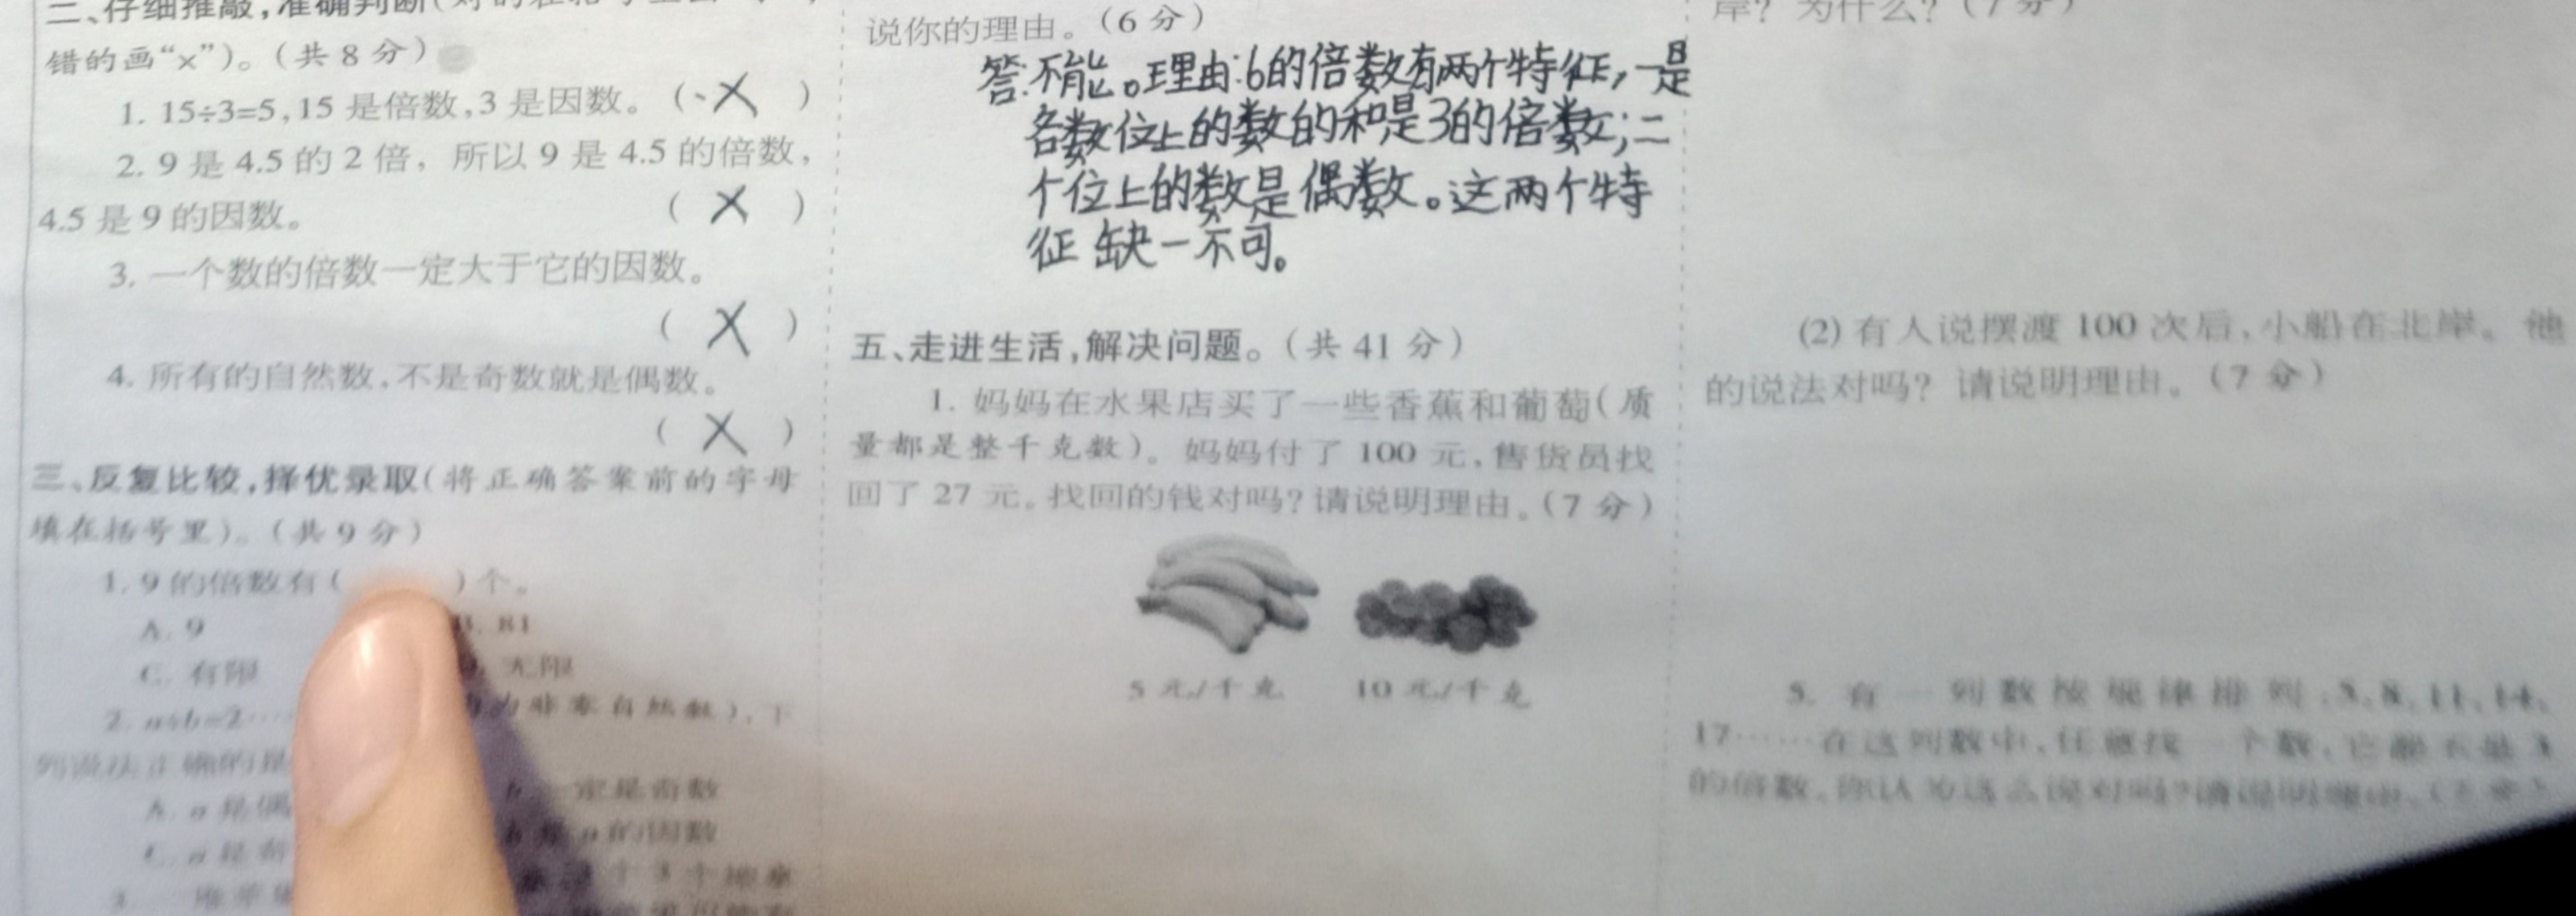 二、仔细推敲,准确判断(
错的画“×”)。(共 8 分)
1. 15÷3=5,15 是倍数,3 是因数。(×)
2. 9 是 4.5 的 2 倍, 所以 9 是 4.5 的倍数,
4.5 是 9 的因数。 (×)
3. 一个数的倍数一定大于它的因数。
(×)
4. 所有的自然数,不是奇数就是偶数。
(×)
三、反复比较,择优录取(将正确答案前的字母
填在括号里)。(共 9 分)
1. 9 的倍数有( )个。
A. 9 B. 81
C. 有限 无限
2. a÷b=2…… 为非零自然数),下
列说法正确的是
A. a 是偶 b 一定是奇数
C. a 是奇 b 是 a 的因数
3. 一堆苹果
说你的理由。(6 分)
答:不能。理由:6的倍数有两个特征,一是
各数位上的数的和是3的倍数;二
个位上的数是偶数。这两个特
征缺一不可。
五、走进生活,解决问题。(共 41 分)
1. 妈妈在水果店买了一些香蕉和葡萄(质
量都是整千克数)。妈妈付了 100 元,售货员找
回了 27 元。找回的钱对吗?请说明理由。(7 分)
5 元/千克 10 元/千克
岸? 为什么?(7 分)
(2) 有人说摆渡 100 次后,小船在北岸。他
的说法对吗? 请说明理由。(7 分)
5. 有一列数按规律排列:5,8,11,14,
17……在这列数中,任意找一个数,它都不是 3
的倍数。你认为这么说对吗?请说明理由。(7 分)